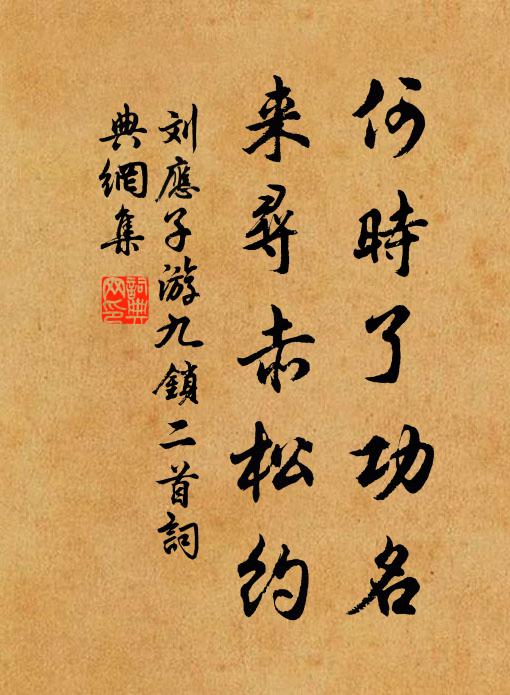 何時了功名
来尋赤松約
刘應子游九鎖二首詞
典網集
詞典
网印